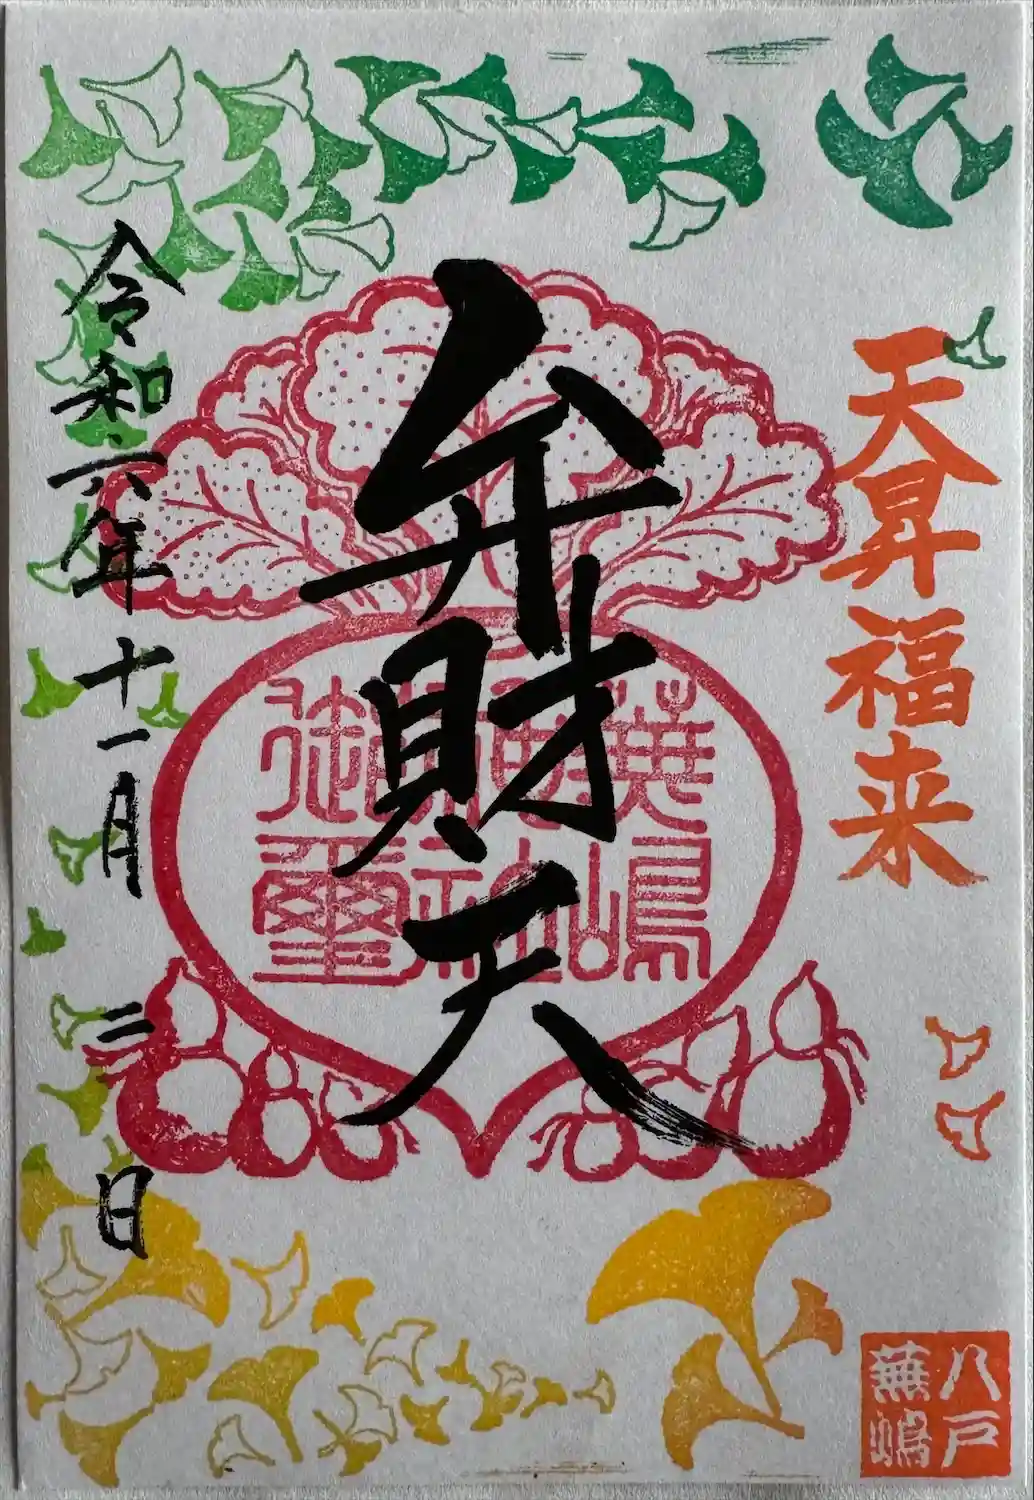 天昇福来
弁財天
蕪嶋
神社
御璽
令和六年十一月三日
八戸
蕪嶋